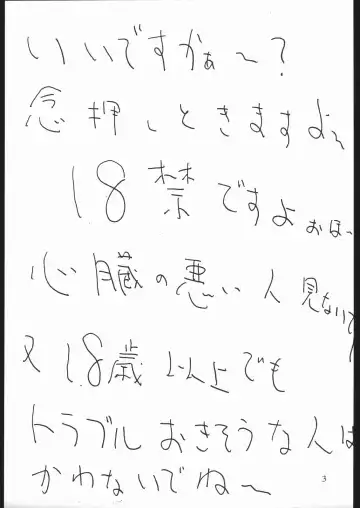 いいですかぁ～?
念押しときますよ～
18禁ですよぉほ～
心臓の悪い人見ないで～
又18歳以上でも
トラブルおきそうな人は
かわないでね～
3